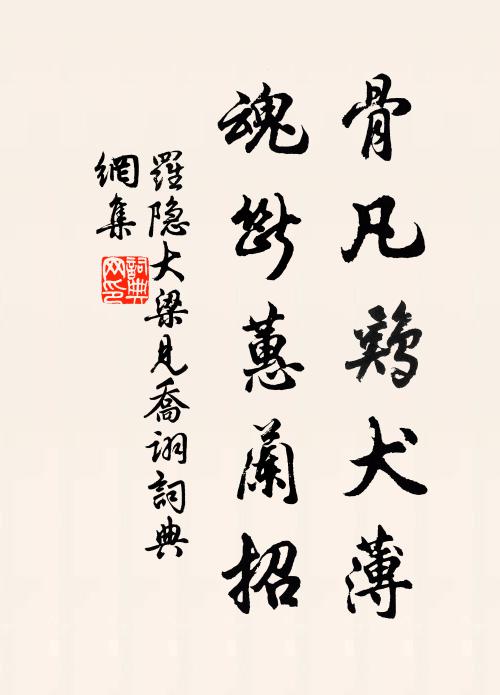 骨凡鷄犬薄
魂斷蕙蘭招
羅隐大梁見喬詡詞典
網集
詞典
网印